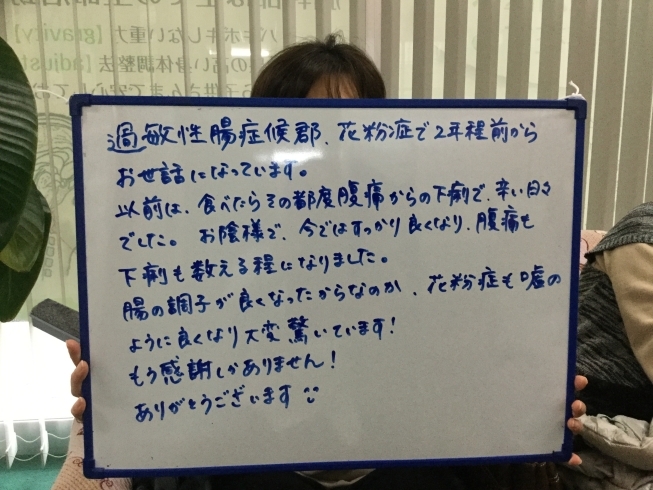 過敏性腸症候郡、花粉症で2年程前から
お世話になっています。
以前は、食べたらその都度腹痛からの下痢で、辛い日々
でした。お陰様で、今ではすっかり良くなり、腹痛も
下痢も数える程になりました。
腸の調子が良くなったからなのか、花粉症も嘘の
ように良くなり大変驚いています!
もう感謝しかありません!
ありがとうございます